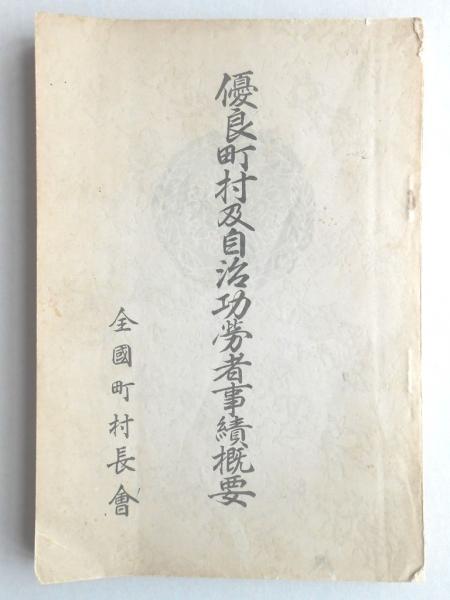 優良町村及自治功勞者事績概要
全國町村長會